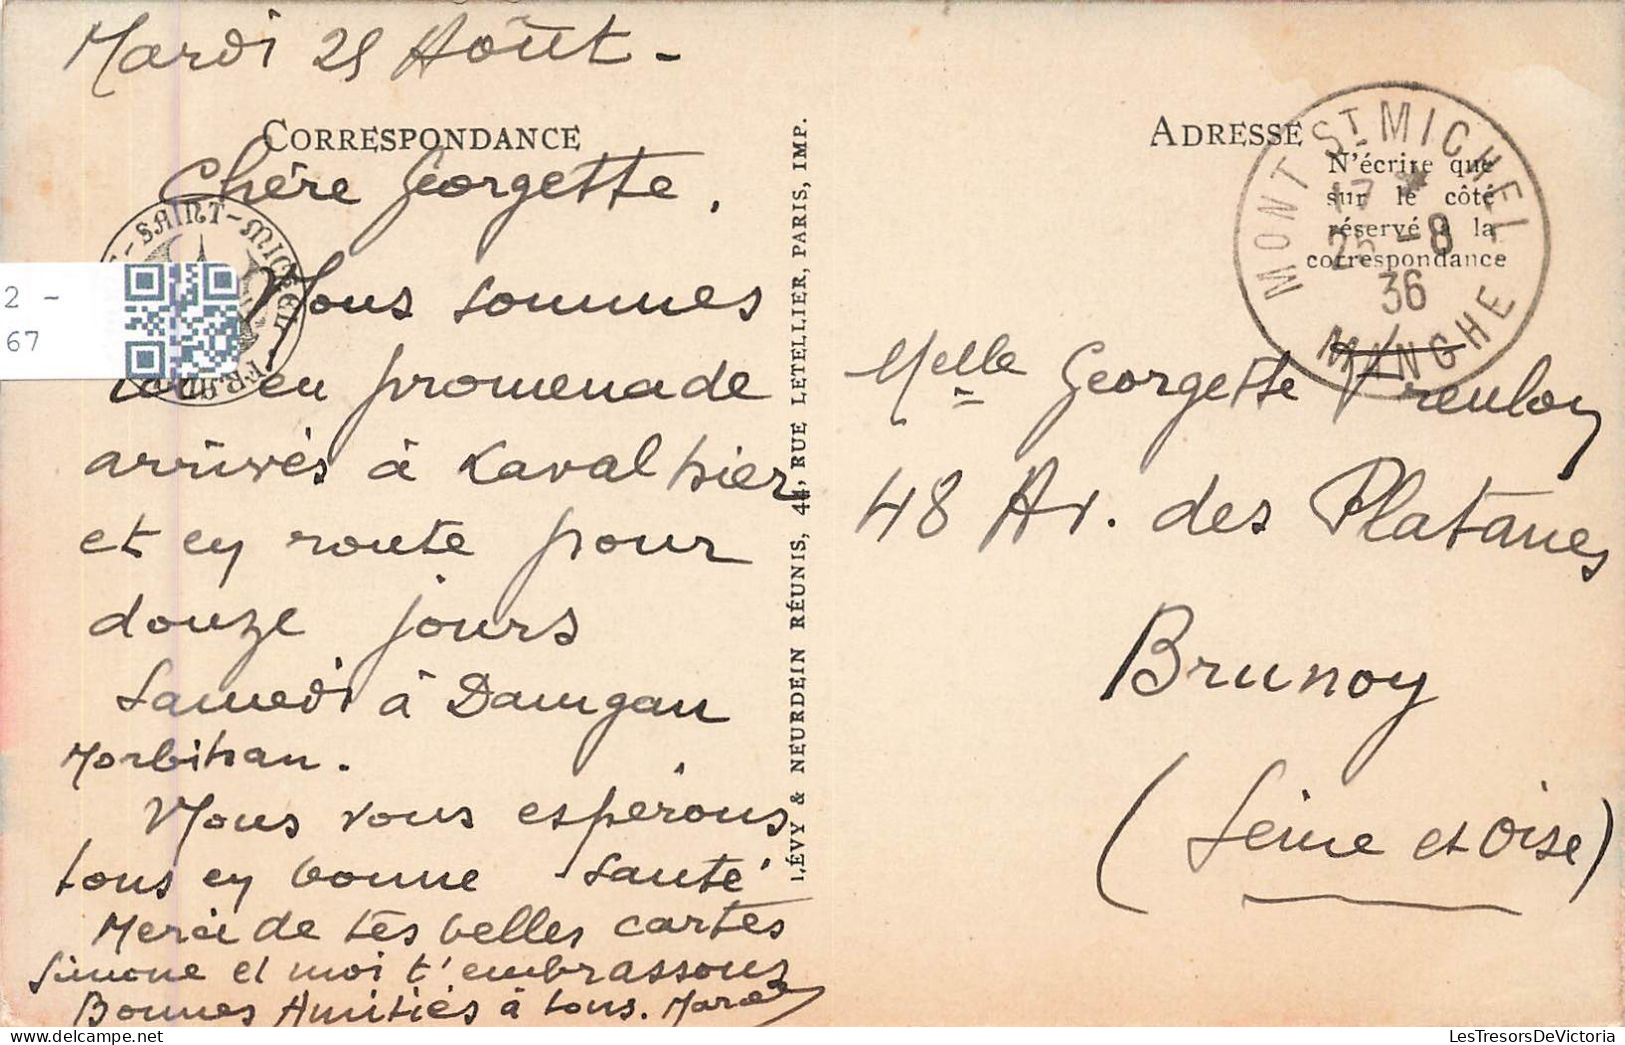 Mardi 25 Août -
CORRESPONDANCE
Chère Georgette,
Nous sommes
en promenade
arrivés à Kavalhier
et en route pour
douze jours
Samedi à Damgan
Morbihan.
Nous vous espérons
tous en bonne santé
Merci de tes belles cartes
Simone et moi t'embrassons
Bonnes Amitiés à tous.
LÉVY & NEURDEIN RÉUNIS, 44, RUE LETELLIER, PARIS, IMP.
ADRESSE
N'écrire que
sur le côté
réservé à la
correspondance
MONT ST MICHEL
17 *
25 -8
36
MANCHE
Melle Georgette Treuloy
48 Av. des Platanes
Brunoy
(Seine et Oise)
-SAINT-MICHEL
2 -
67
LesTresorsDeVictoria